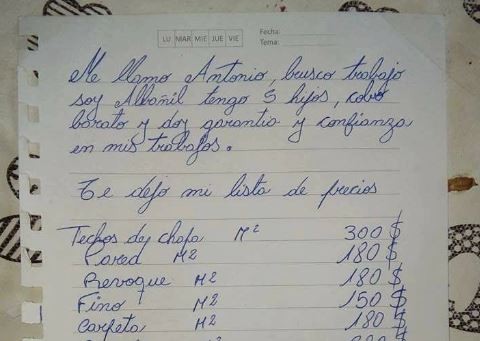 LU MAR MIE JUE VIE
Fecha:
Tema:
Me llamo Antonio, busco trabajo
soy Albañil tengo 5 hijos, cobro
barato y doy garantia y confianza
en mis trabajos.
Te dejo mi lista de precios
Techos de chapa M² 300 $
Pared M² 180 $
Revoque M² 180 $
Fino M² 150 $
Carpeta M² 180 $